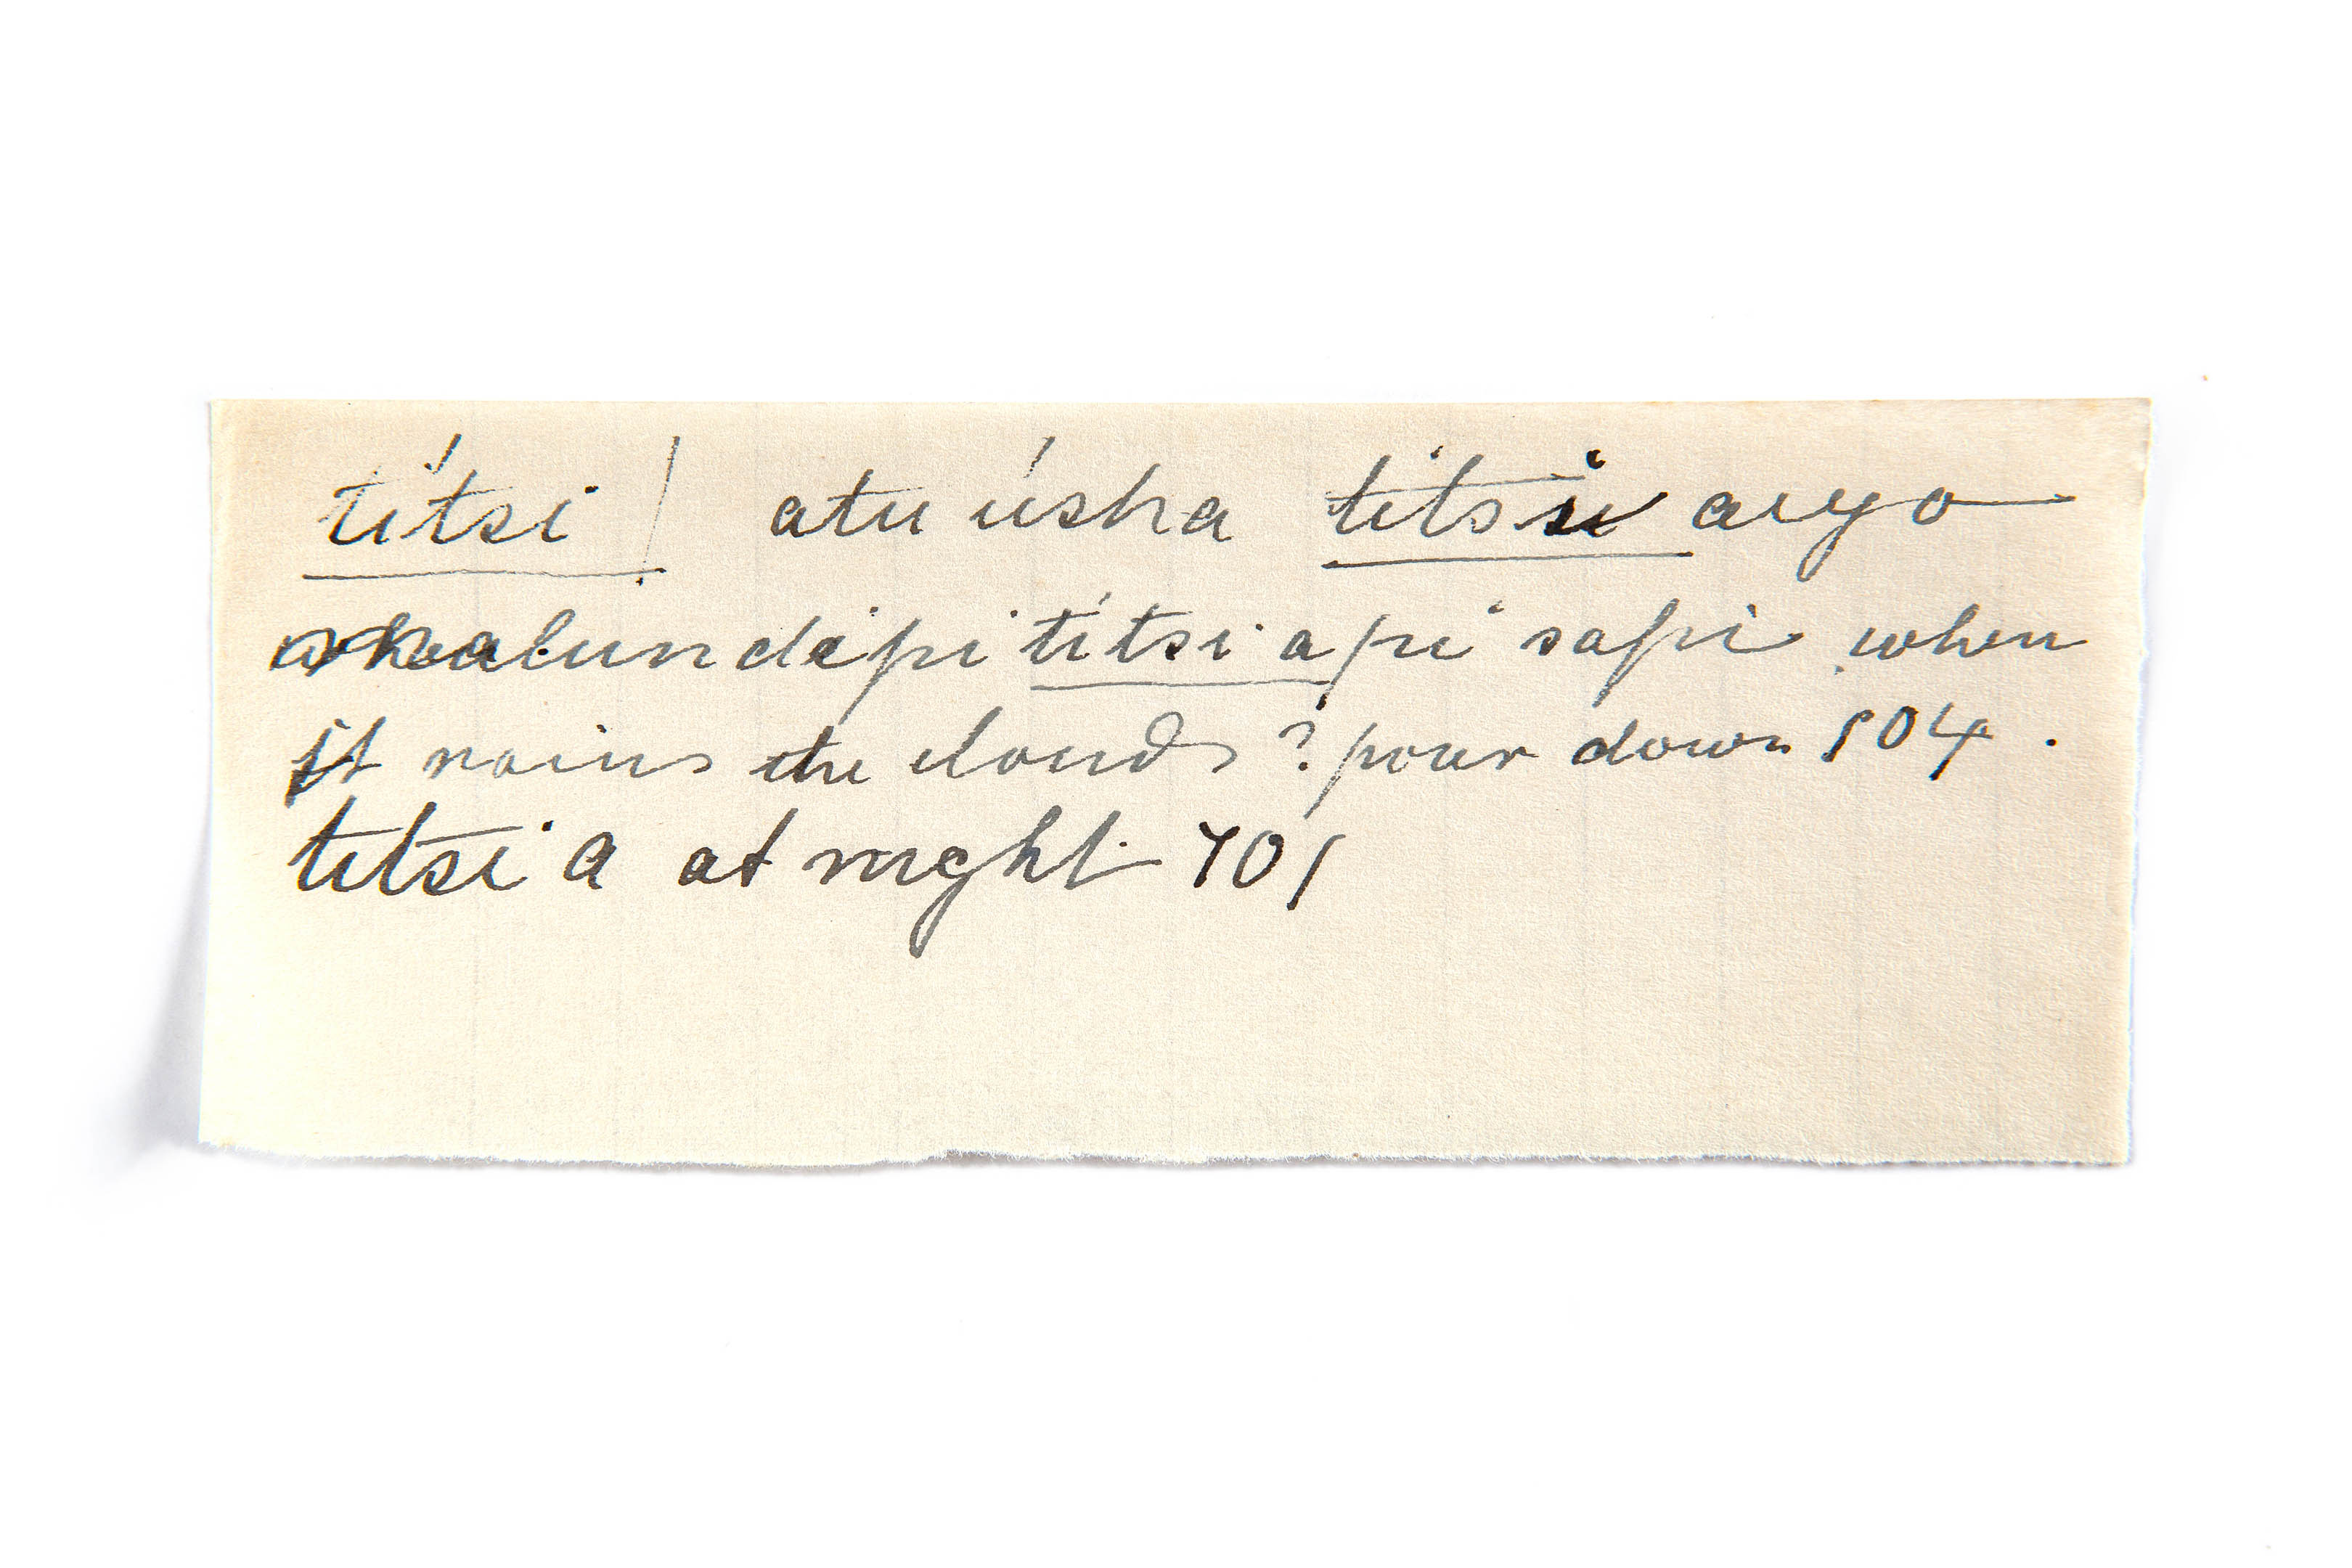 títsi / atu úsha titsii aiyo
alun depi títsi api sapi when
it rains the clouds ? pour down 504 .
titsi a at night 701